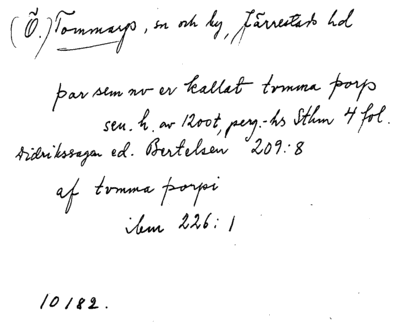 (Ö.) Tommarp, sn och by, Järrestads hd
þar sem nv er kallat tvmma þorp
sen. h. av 1200t, perg.-hs Sthm 4 fol.
Didrikssagan ed. Bertelsen 209:8
af tvmma þorpi
ibm 226:1
10182.